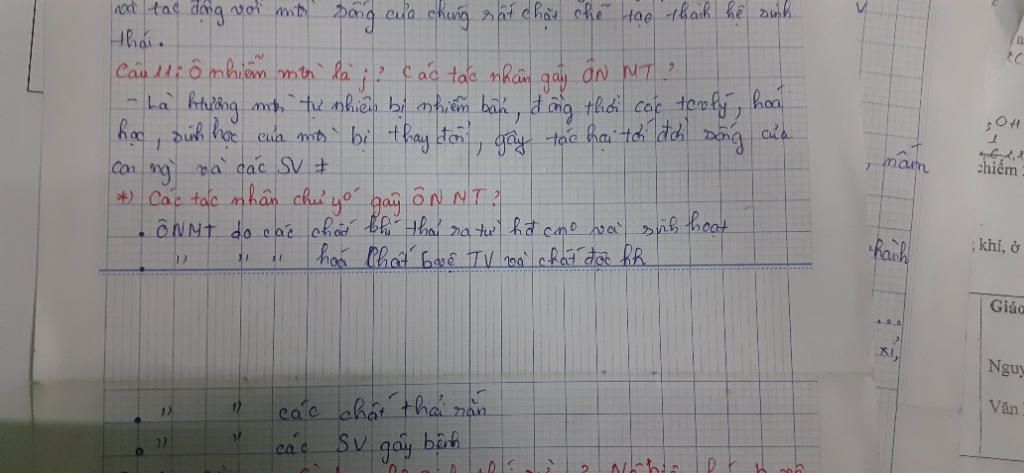 tác động với mtr sống của chúng rất chặt chẽ tạo thành hệ sinh
thái.
Câu 11: Ô nhiễm mtr là j? Các tác nhân gây ÔN MT?
- Là htượng mtr tự nhiên bị nhiễm bẩn, đồng thời các tc vlý, hoá
học, sinh học của mtr bị thay đổi, gây tác hại tới đời sống của
con ng và các SV ≠
*) Các tác nhân chủ yố gây ÔN MT?
• ÔNMT do các chất khí thải ra từ hđ cno và sinh hoạt
• " " " hoá chất bvệ TV và chất độc hh
• " " các chất thải rắn
• " " các SV gây bệnh
, nấm
hành
...
xỉ,
OH
chiếm
khí, ở
Giáo
Nguy
Văn